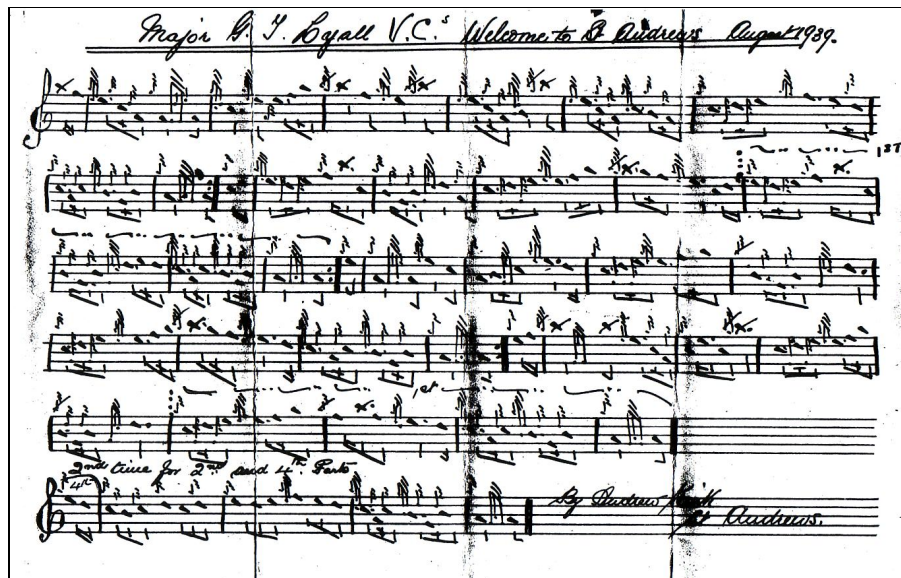 Major G. T. Lyall V.C.s Welcome to St Andrews August 1939.
1ST
2nd time for 2nd and 4th Parts
4th
By Andrew
St Andrews.